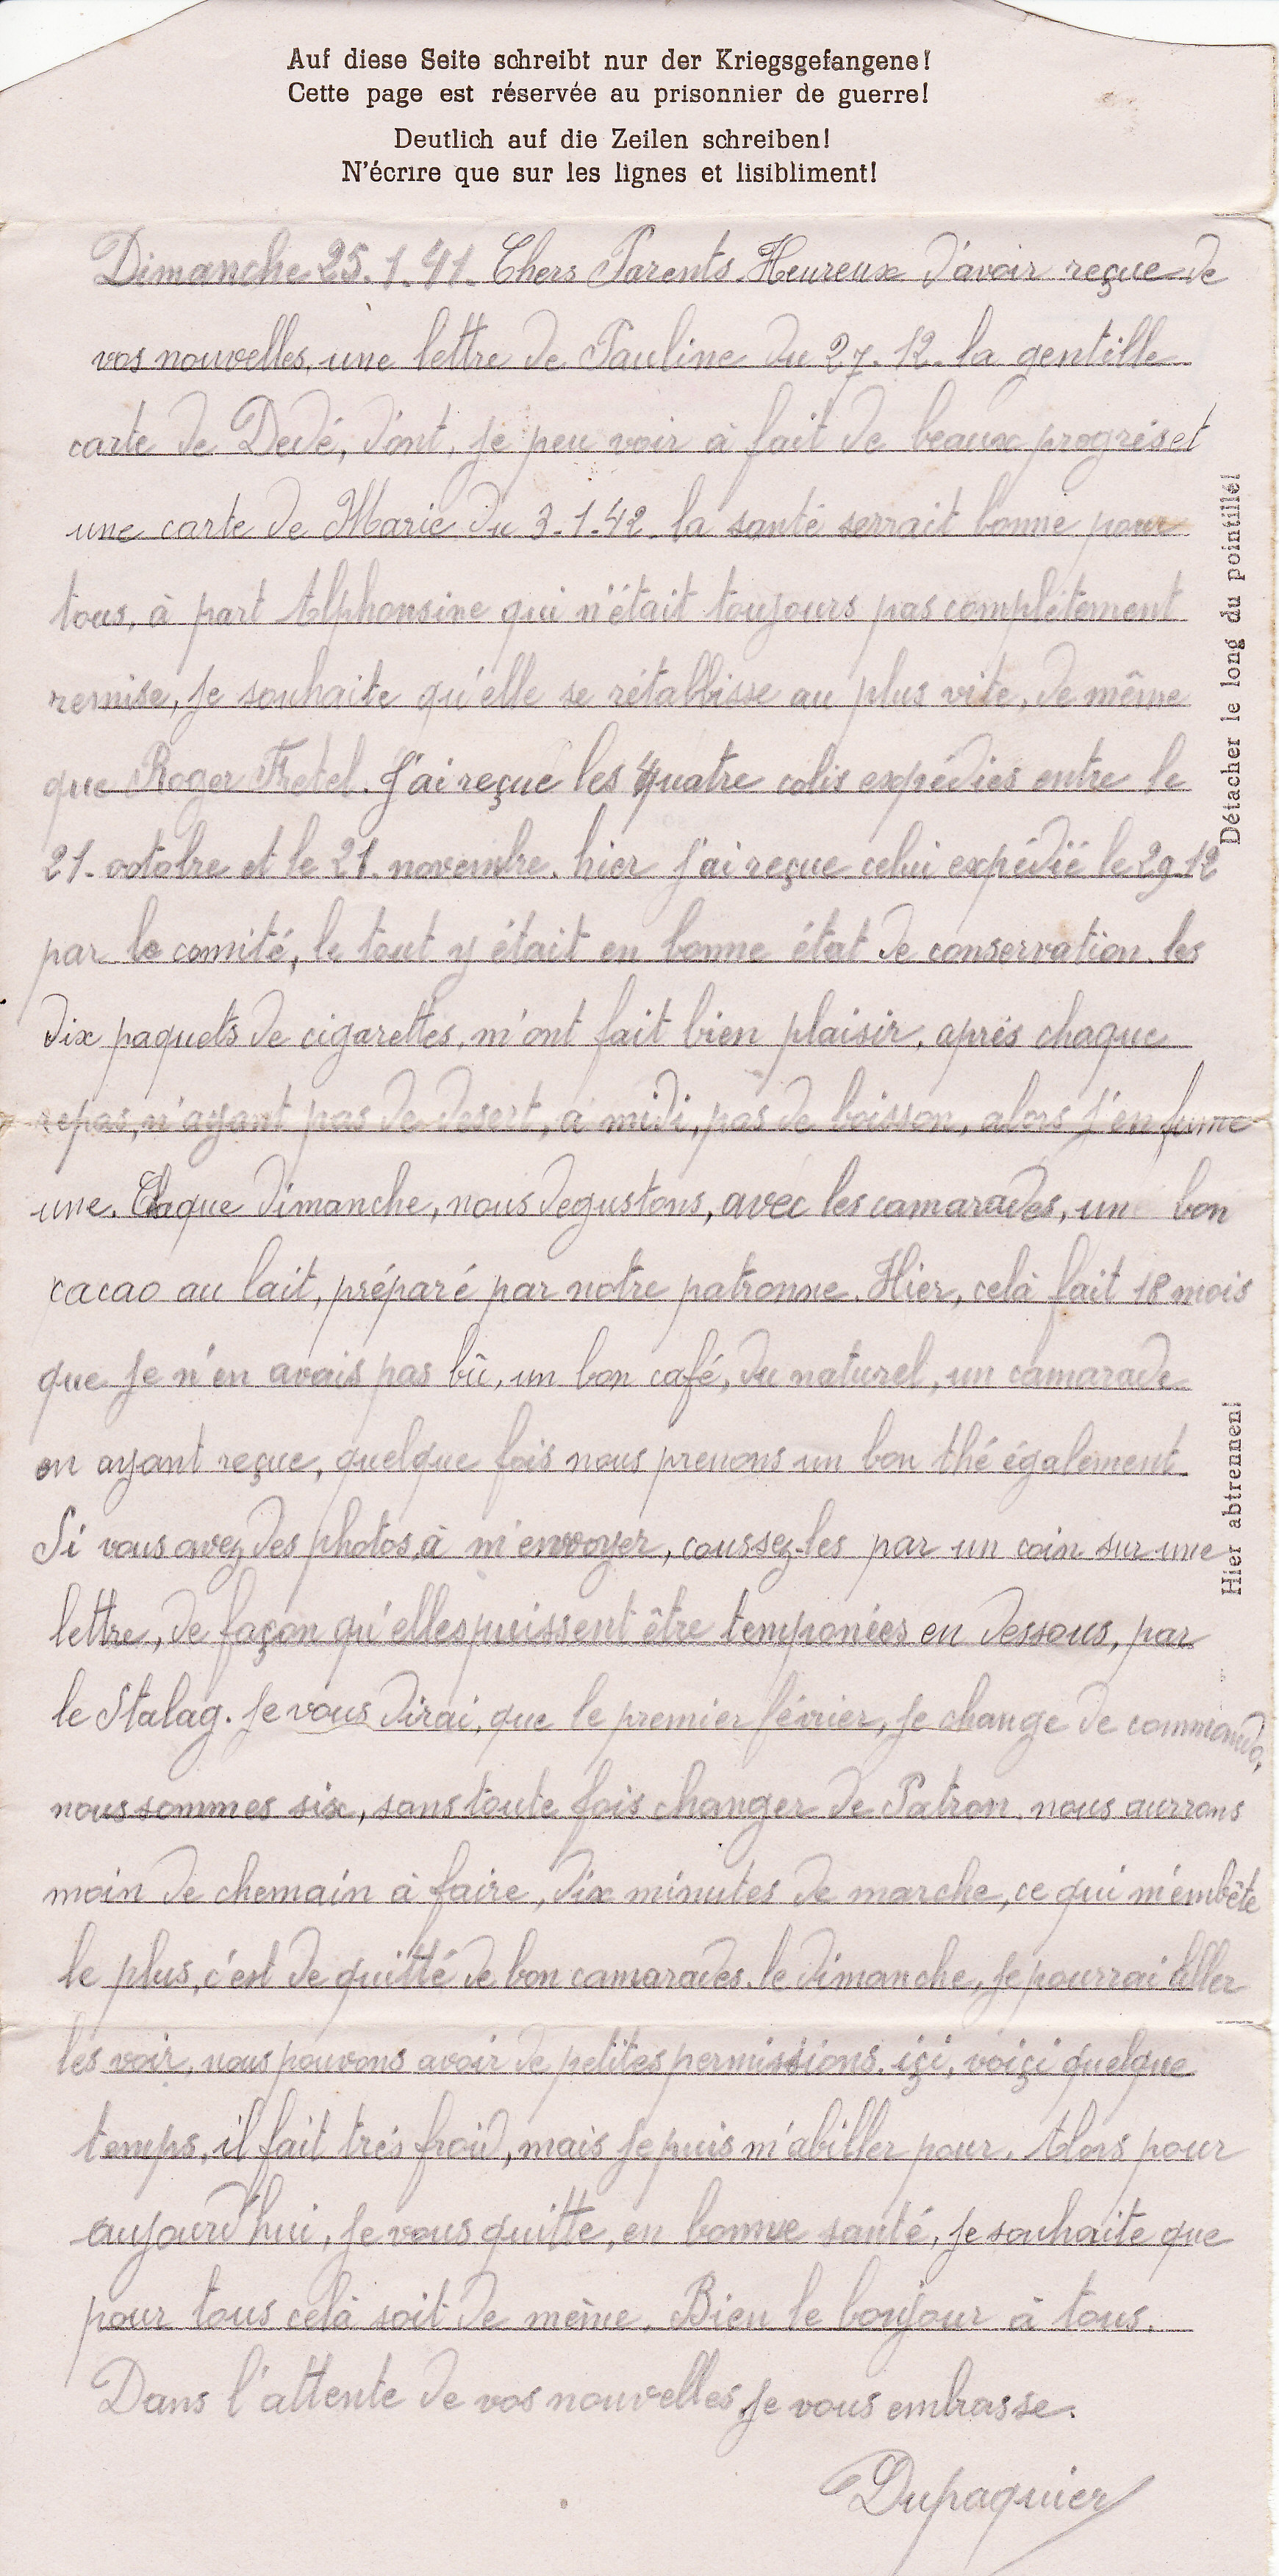 Auf diese Seite schreibt nur der Kriegsgefangene!
Cette page est réservée au prisonnier de guerre!
Deutlich auf die Zeilen schreiben!
N'écrire que sur les lignes et lisibliment!
Dimanche 25.1.41. Chers Parents. Heureux d'avoir reçue de
vos nouvelles, une lettre de Pauline du 27.12. la gentille
carte de Dedé, d'ont, je peu voir à fait de beaux progrés et
une carte de Marie du 3-1-42. la santé serrait bonne pour
tous, à part Alphonsine qui n'était toujours pas complétement
remise, je souhaite qu'elle se rétablisse au plus vite, de même
que Roger Fretel. J'ai reçue les quatre colis expédiés entre le
21. octobre et le 21. novembre. hier j'ai reçue celui expédié le 29.12
par le comité, le tout y était en bonne état de conservation. les
dix paquets de cigarettes, m'ont fait bien plaisir, aprés chaque
repas, n'ayant pas de desert, a midi, pas de boisson, alors j'en fume
une. Chaque dimanche, nous degustons, avec les camarades, un bon
cacao au lait, préparé par notre patronne. Hier, celà fait 18 mois
que je n'en avais pas bû, un bon café, du naturel, un camarade
en ayant reçue, quelque fois nous prenons un bon thé également.
Si vous avez des photos, à m'envoyer, coussez-les par un coin sur une
lettre, de façon qu'elles puissent être temponées en dessous, par
le Stalag. Je vous dirai, que le premier février, je change de commando,
nous sommes six, sans toute fois changer de Patron, nous aurrons
moin de chemain à faire, dix minutes de marche, ce qui m'embête
le plus, c'est de quitté de bon camarades. le dimanche, je pourrai aller
les voir, nous pouvons avoir de petites permissions. içi, voiçi quelque
temps, il fait trés froid, mais je puis m'abiller pour. Alors pour
aujourd'hui, je vous quitte, en bonne santé, je souhaite que
pour tous celà soit de même. Bien le bonjour à tous.
Dans l'attente de vos nouvelles je vous embrasse.
Dupaquier
Détacher le long du pointillé!
Hier abtrennen!